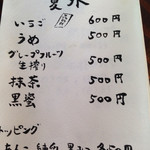 夏氷
いちご 600円
うめ 500円
グレープフルーツ
生搾り 500円
抹茶 500円
黒蜜 500円
トッピング
あんこ 練乳 黒みつ